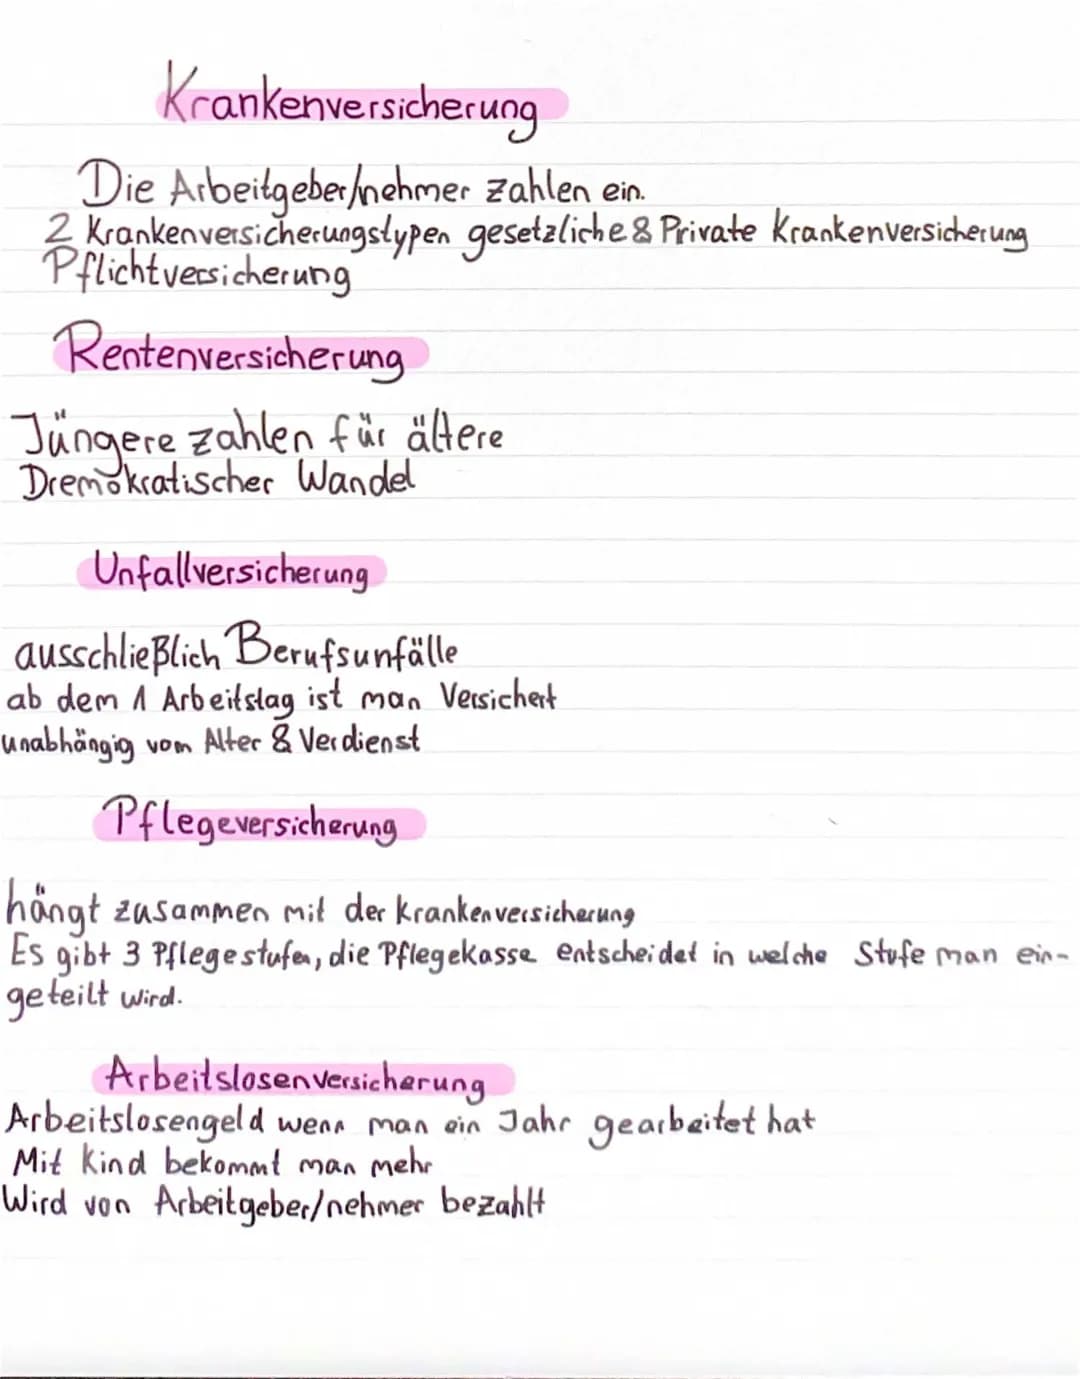 Krankenversicherung
Die Arbeitgeber/nehmer zahlen ein.
2 Krankenversicherungstypen gesetzliche & Private Krankenversicherung
Pflichtversicherung
Rentenversicherung
Jüngere zahlen für ältere
Dremokratischer Wandel
Unfallversicherung
ausschließlich Berufsunfälle
ab dem 1 Arbeitstag ist man Versichert
unabhängig vom Alter & Verdienst
Pflegeversicherung
hängt zusammen mit der Krankenversicherung
Es gibt 3 Pflegestufen, die Pflegekasse entscheidet in welche Stufe man ein-
geteilt wird.
Arbeitslosenversicherung
Arbeitslosengeld wenn man ein Jahr gearbeitet hat
Mit Kind bekommt man mehr
Wird von Arbeitgeber/nehmer bezahlt